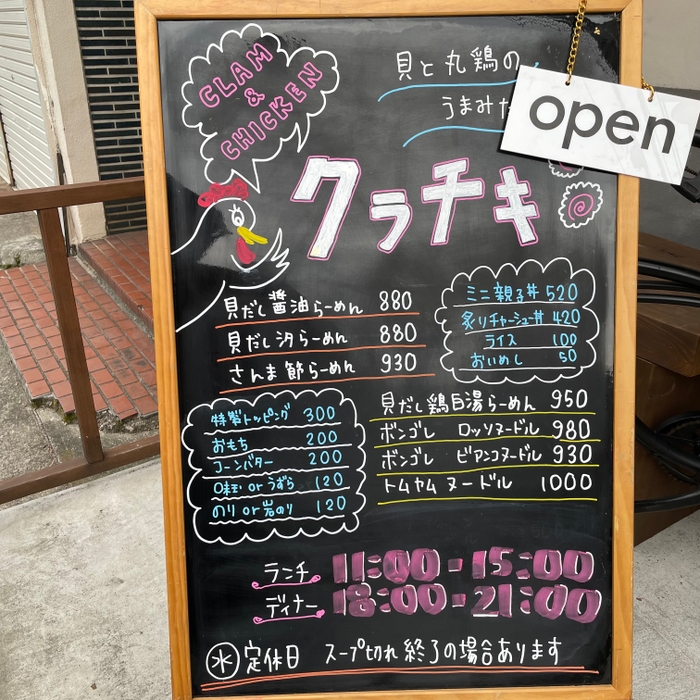 CLAM
&
CHICKEN
貝と丸鶏の
うまみた
open
クラチキ
貝だし醤油らーめん 880
貝だし汐らーめん 880
さんま節らーめん 930
ミニ親子丼 520
炙りチャーシュー丼 420
ライス 100
おいめし 50
特製トッピング 300
おもち 200
コーンバター 200
味玉 or うずら 120
のり or 岩のり 120
貝だし鶏白湯らーめん 950
ボンゴレ ロッソヌードル 980
ボンゴレ ビアンコヌードル 930
トムヤム ヌードル 1000
ランチ 11:00-15:00
ディナー 18:00-21:00
水 定休日 スープ切れ終了の場合あります